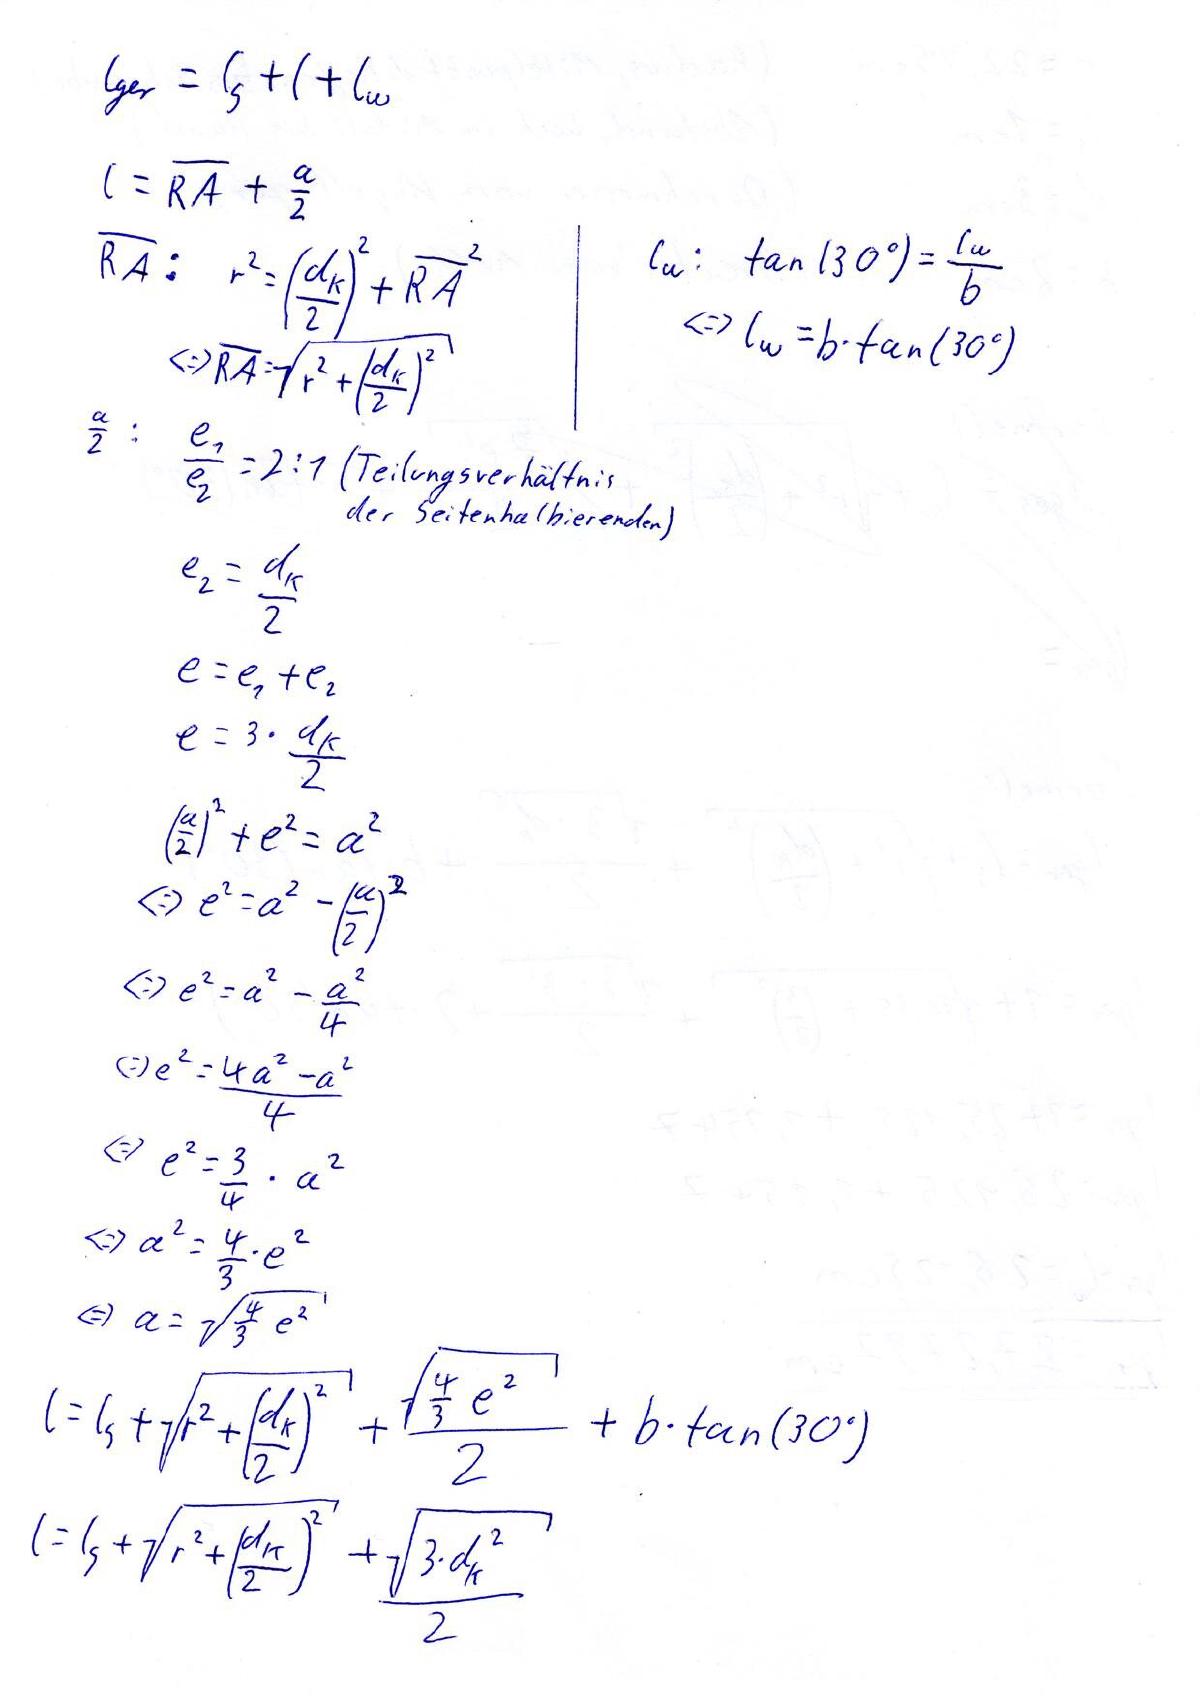 l_ger = l_s + l + l_w
l = \overline{RA} + \frac{a}{2}
\overline{RA} : r² = (\frac{d_K}{2})² + \overline{RA}²
<=> \overline{RA} = √(r² + (\frac{d_K}{2})²)
l_w : tan(30°) = \frac{l_w}{b}
<=> l_w = b · tan(30°)
\frac{a}{2} : \frac{e_1}{e_2} = 2:1 (Teilungsverhältnis
der Seitenhalbierenden)
e_2 = \frac{d_K}{2}
e = e_1 + e_2
e = 3 · \frac{d_K}{2}
(\frac{a}{2})² + e² = a²
<=> e² = a² - (\frac{a}{2})²
<=> e² = a² - \frac{a²}{4}
<=> e² = \frac{4a² - a²}{4}
<=> e² = \frac{3}{4} · a²
<=> a² = \frac{4}{3} · e²
<=> a = √(\frac{4}{3} e²)
l = l_s + √(r² + (\frac{d_K}{2})²) + \frac{√(\frac{4}{3} e²)}{2} + b · tan(30°)
l = l_s + √(r² + (\frac{d_K}{2})²) + \frac{√(3 · d_K²)}{2}